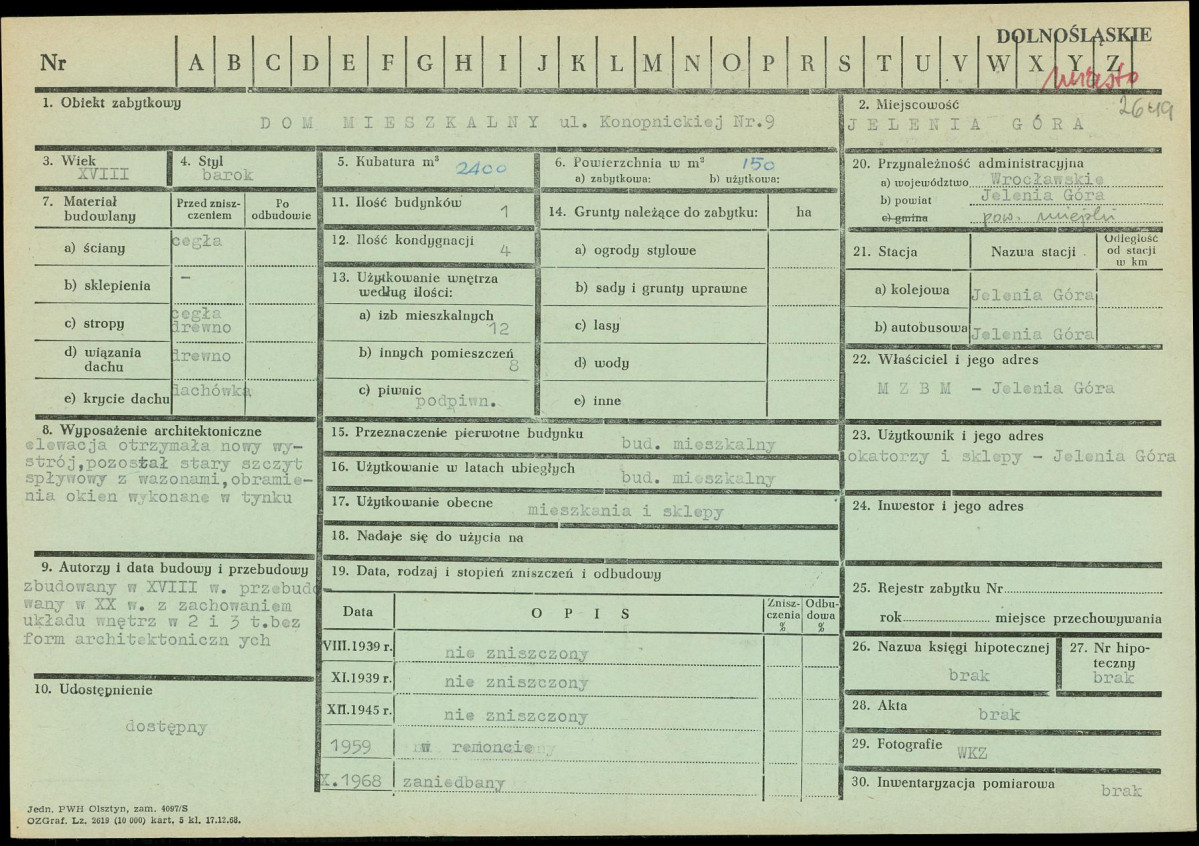 DOLNOŚLĄSKIE
Nr A B C D E F G H I J K L M N O P R S T U V W X Y Z
miasto
2649
1. Obiekt zabytkowy
DOM MIESZKALNY ul. Konopnickiej Nr.9
2. Miejscowość
JELENIA GÓRA
3. Wiek
XVIII
4. Styl
barok
5. Kubatura m³ 2400
6. Powierzchnia w m² 150
a) zabytkowa: b) użytkowa:
7. Materiał budowlany
Przed zniszczeniem
Po odbudowie
a) ściany cegła
b) sklepienia –
c) stropy cegła
drewno
d) wiązania dachu drewno
e) krycie dachu dachówka
8. Wyposażenie architektoniczne
elewacja otrzymała nowy wy-
strój,pozostał stary szczyt
spływowy z wazonami,obramie-
nia okien wykonane w tynku
9. Autorzy i data budowy i przebudowy
zbudowany w XVIII w. przebudo
wany w XX w. z zachowaniem
układu wnętrz w 2 i 3 t.bez
form architektoniczn ych
10. Udostępnienie
dostępny
11. Ilość budynków 1
12. Ilość kondygnacji 4
13. Użytkowanie wnętrza
według ilości:
a) izb mieszkalnych 12
b) innych pomieszczeń 8
c) piwnic podpiwn.
14. Grunty należące do zabytku: ha
a) ogrody stylowe
b) sady i grunty uprawne
c) lasy
d) wody
e) inne
15. Przeznaczenie pierwotne budynku bud. mieszkalny
16. Użytkowanie w latach ubiegłych bud. mieszkalny
17. Użytkowanie obecne mieszkania i sklepy
18. Nadaje się do użycia na
19. Data, rodzaj i stopień zniszczeń i odbudowy
Data OPIS Zniszczenia % Odbudowa %
VIII.1939 r. nie zniszczony
XI.1939 r. nie zniszczony
XII.1945 r. nie zniszczony
1959 w remoncie
X.1968 zaniedbany
20. Przynależność administracyjna
a) województwo Wrocławskie
b) powiat Jelenia Góra
c) gmina pow. miejski
21. Stacja Nazwa stacji Odległość od stacji w km
a) kolejowa Jelenia Góra
b) autobusowa Jelenia Góra
22. Właściciel i jego adres
M Z B M – Jelenia Góra
23. Użytkownik i jego adres
lokatorzy i sklepy – Jelenia Góra
24. Inwestor i jego adres
25. Rejestr zabytku Nr
rok miejsce przechowywania
26. Nazwa księgi hipotecznej
brak
27. Nr hipoteczny
brak
28. Akta
brak
29. Fotografie WKZ
30. Inwentaryzacja pomiarowa
brak
Jedn. PWH Olsztyn, zam. 4097/S
OZGraf. Lz. 2619 (10 000) kart, 5 kl. 17.12.68.